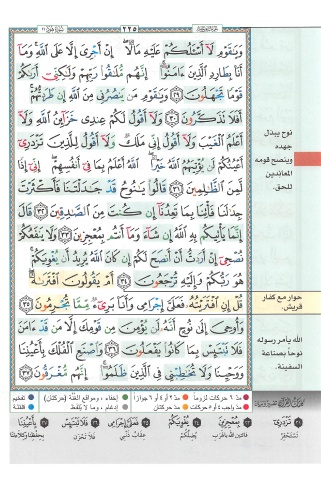 ٢٢٥
وَيَٰقَوْمِ لَآ أَسْـَٔلُكُمْ عَلَيْهِ مَالًا ۖ إِنْ أَجْرِيَ إِلَّا عَلَى ٱللَّهِ ۚ وَمَآ
أَنَا۠ بِطَارِدِ ٱلَّذِينَ ءَامَنُوٓا۟ ۚ إِنَّهُم مُّلَٰقُوا۟ رَبِّهِمْ وَلَٰكِنِّيٓ أَرَىٰكُمْ
قَوْمًا تَجْهَلُونَ ٢٩ وَيَٰقَوْمِ مَن يَنصُرُنِي مِنَ ٱللَّهِ إِن طَرَدتُّهُمْ ۚ
أَفَلَا تَذَكَّرُونَ ٣٠ وَلَآ أَقُولُ لَكُمْ عِندِي خَزَآئِنُ ٱللَّهِ وَلَآ
أَعْلَمُ ٱلْغَيْبَ وَلَآ أَقُولُ إِنِّي مَلَكٌ وَلَآ أَقُولُ لِلَّذِينَ تَزْدَرِيٓ
أَعْيُنُكُمْ لَن يُؤْتِيَهُمُ ٱللَّهُ خَيْرًا ۖ ٱللَّهُ أَعْلَمُ بِمَا فِيٓ أَنفُسِهِمْ ۖ إِنِّيٓ إِذًا
لَّمِنَ ٱلظَّٰلِمِينَ ٣١ قَالُوا۟ يَٰنُوحُ قَدْ جَٰدَلْتَنَا فَأَكْثَرْتَ
جِدَٰلَنَا فَأْتِنَا بِمَا تَعِدُنَآ إِن كُنتَ مِنَ ٱلصَّٰدِقِينَ ٣٢ قَالَ
إِنَّمَا يَأْتِيكُم بِهِ ٱللَّهُ إِن شَآءَ وَمَآ أَنتُم بِمُعْجِزِينَ ٣٣ وَلَا يَنفَعُكُمْ
نُصْحِيٓ إِنْ أَرَدتُّ أَنْ أَنصَحَ لَكُمْ إِن كَانَ ٱللَّهُ يُرِيدُ أَن يُغْوِيَكُمْ ۚ
هُوَ رَبُّكُمْ وَإِلَيْهِ تُرْجَعُونَ ٣٤ أَمْ يَقُولُونَ ٱفْتَرَىٰهُ ۖ
قُلْ إِنِ ٱفْتَرَيْتُهُۥ فَعَلَيَّ إِجْرَامِي وَأَنَا۠ بَرِيٓءٌ مِّمَّا تُجْرِمُونَ ٣٥
وَأُوحِيَ إِلَىٰ نُوحٍ أَنَّهُۥ لَن يُؤْمِنَ مِن قَوْمِكَ إِلَّا مَن قَدْ ءَامَنَ
فَلَا تَبْتَئِسْ بِمَا كَانُوا۟ يَفْعَلُونَ ٣٦ وَٱصْنَعِ ٱلْفُلْكَ بِأَعْيُنِنَا
وَوَحْيِنَا وَلَا تُخَٰطِبْنِي فِي ٱلَّذِينَ ظَلَمُوٓا۟ ۚ إِنَّهُم مُّغْرَقُونَ ٣٧
نوح يبذل
جهده
وينصح قومه
المعاندين
للحق.
حوار مع كفار
قريش.
الله يأمر رسوله
نوحاً بصناعة
السفينة.
مدّ ٦ حركات لزوماً مدّ ٢ أو ٤ أو ٦ جوازاً إخفاء، ومواقع الغُنَّة (حركتان) تفخيم
مدّ واجب ٤ أو ٥ حركات مدّ حركتان إدغام، وما لا يُلفظ قلقلة
٣١ تَزْدَرِي ٣٣ بِمُعْجِزِينَ ٣٤ يُغْوِيَكُمْ ٣٥ فَعَلَيَّ إِجْرَامِي ٣٦ فَلَا تَبْتَئِسْ ٣٧ بِأَعْيُنِنَا
تَسْتَحْقِرُ فائتين الله بالهرب يُضِلَّكُمْ عقاب ذنبي فلا تحزن بحفظنا وكلاءتنا